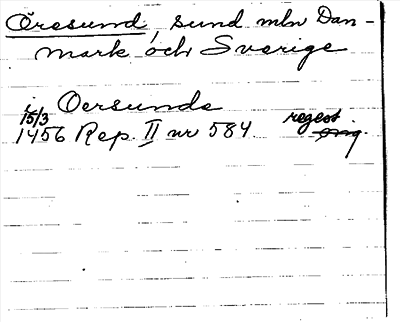 Öresund sund mln Dan-
mark och Sverige
i Oersunde
15/3 regest
1456 Rep. II nr 584. orig.